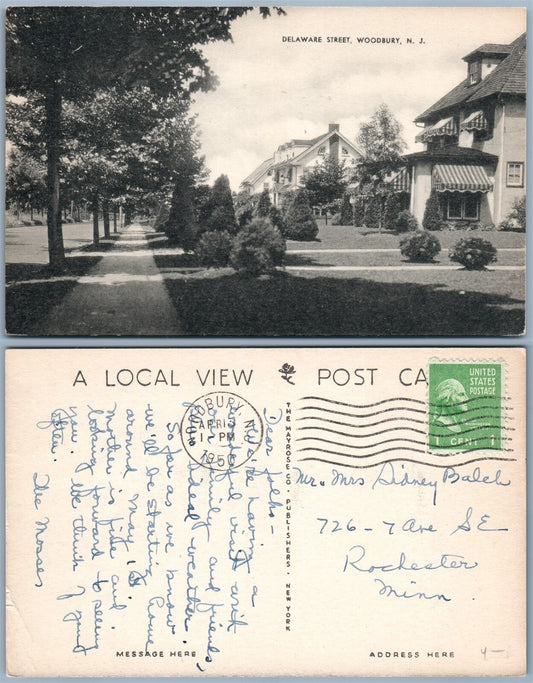 DELAWARE STREET, WOODBURY, N. J.
A LOCAL VIEW POST CA
UNITED
STATES
POSTAGE
1 CENT 1
WOODBURY, N.J.
APR 13
12 PM
195
THE MAYROSE CO. PUBLISHERS. NEW YORK
Dear folks -
We're having a
visit with
family and friends,
ideal weather.
So far as we know
we'll be starting home
around May 1st.
Mother is fine and
looking forward to seeing
you. We think of you
often.
The Mosses
Mr. & Mrs Sidney Balch
726 - 7 Ave SE
Rochester
Minn.
MESSAGE HERE
ADDRESS HERE
4-